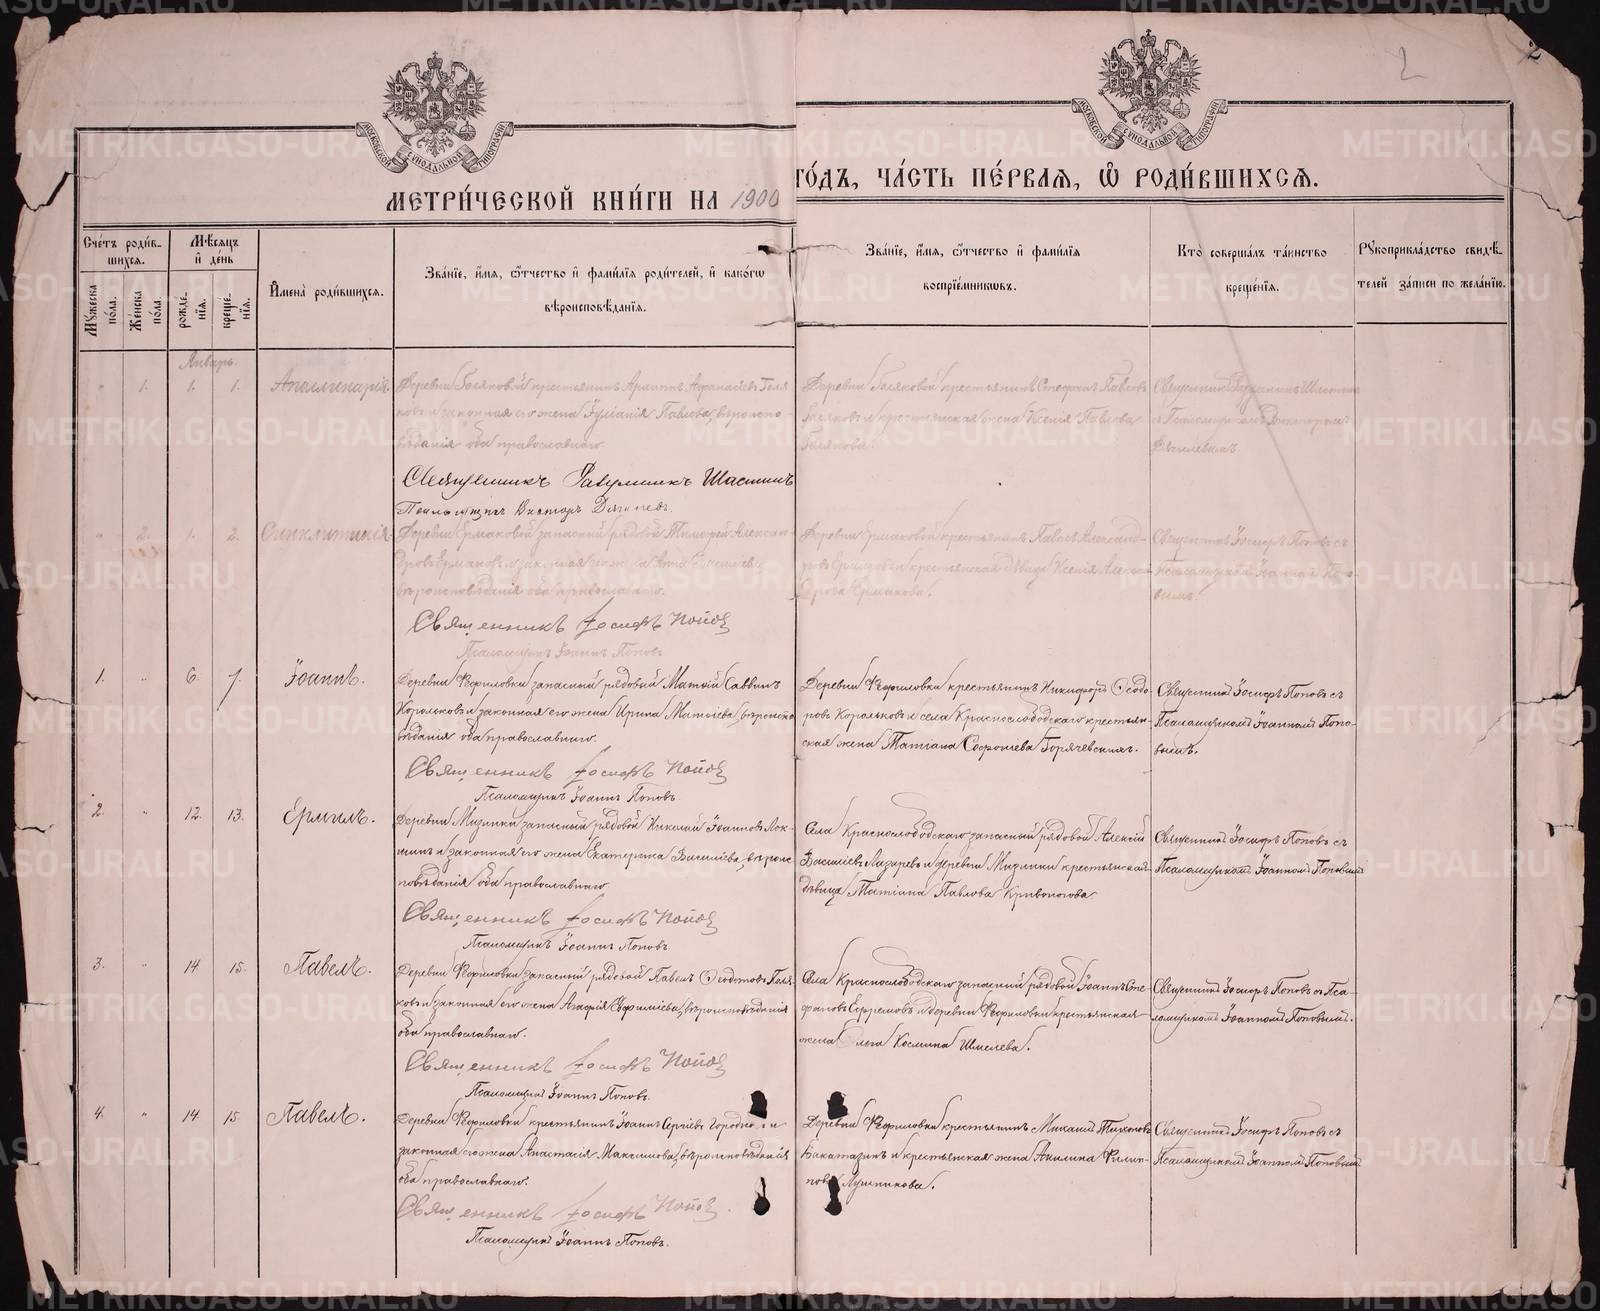 МОСКОВСКОЙ СѴНОДАЛЬНОЙ ТИПОГРАФІИ
МОСКОВСКОЙ СѴНОДАЛЬНОЙ ТИПОГРАФІИ
2
МЕТРИ́ЧЕСКОЙ КНИ́ГИ НА 1900 ГО́ДЪ, ЧА́СТЬ ПЕ́РВАѦ, Ѡ҆ РОДИ́ВШИХСѦ.
Сче́тъ роди́в-
шихсѧ.
Мѹ́жеска по́ла.
Же́нска по́ла.
Мѣ́сѧцъ
и҆ де́нь
рожде́-
нїѧ.
креще́-
нїѧ.
И҆мена̀ роди́вшихсѧ.
Зва́нїе, и҆́мѧ, ѻ҆́тчество и҆ фами́лїѧ роди́телей, и҆ како́гѡ
вѣроисповѣ́данїѧ.
Зва́нїе, и҆́мѧ, ѻ҆́тчество и҆ фами́лїѧ
воспрїе́мникѡвъ.
Кто̀ соверша́лъ та́инство
креще́нїѧ.
Рѹкоприкла́дство свидѣ́-
телей за́писи по жела́нїю.
Январь.
" 1. 1. 1. Аполлинарія.
Деревни Голяковой крестьянинъ Афанасіевъ Голя
ковъ и законная его жена Іуліанія Павлова, вѣроиспо-
вѣданія оба православнаго.
Деревни Голяковой крестьянинъ Стефанъ Павловъ
Голяковъ и крестьянская жена Ксенія Павлова
Голякова.
Священникъ Шастинъ
съ Псаломщикомъ Викторомъ
Священникъ Шастинъ
Псаломщикъ Викторъ
" 2. 1. 2. Синклитикія.
Деревни Ермаковой запасный рядовой Тимофей Алексан-
дровъ Ермаковъ и законная его жена
вѣроисповѣданія оба православнаго.
Деревни Ермаковой крестьянинъ Павелъ Александ-
ровъ Ермаковъ и крестьянская дѣвица Ксенія Алексан-
дрова Ермакова.
Священникъ Іосифъ Поповъ съ
Псаломщикомъ Іоанномъ Попо-
вымъ.
Священникъ Іосифъ Попов
Псаломщикъ Іоаннъ Поповъ
1. " 6. 7. Іоаннъ.
Деревни Ѳефиловки запасный рядовой Матѳій Саввинъ
Корольковъ и законная его жена Ирина Матѳіева, вѣроиспо
вѣданія оба православнаго.
Деревни Ѳефиловки крестьянинъ Никифоръ Ѳеодо-
ровъ Корольковъ и села Краснослободскаго крестьян-
ская жена Татіана Софоніева Горячевскихъ.
Священникъ Іосифъ Поповъ съ
Псаломщикомъ Іоанномъ Попо-
вымъ.
Священникъ Іосифъ Попов
Псаломщикъ Іоаннъ Поповъ.
2. " 12. 13. Ермилъ.
Деревни Мизинки запасный рядовой Николай Іоанновъ Лок-
шинъ и законная его жена Екатерина Василіева, вѣроис-
повѣданія оба православнаго.
Села Краснослободскаго запасный рядовой Алексій
Василіевъ Лазаревъ и деревни Мизинки крестьянская
дѣвица Татіана Павлова Кривоногова.
Священникъ Іосифъ Поповъ съ
Псаломщикомъ Іоанномъ Поповымъ
Священникъ Іосифъ Попов
Псаломщикъ Іоаннъ Поповъ
3. " 14. 15. Павелъ.
Деревни Ѳефиловки запасный рядовой Павелъ Ѳеодотовъ Голя
ковъ и законная его жена Агафія Евфиміева, вѣроисповѣданія
оба православнаго.
Села Краснослободскаго запасный рядовой Іоаннъ Сте-
фановъ Ефремовъ и деревни Ѳефиловки крестьянская
жена Ольга Космина Шмелева.
Священникъ Іосифъ Поповъ съ Пса-
ломщикомъ Іоанномъ Поповымъ.
Священникъ Іосифъ Попов
Псаломщикъ Іоаннъ Поповъ.
4. " 14 15. Павелъ.
Деревни Ѳефиловки крестьянинъ Іоаннъ Сергіевъ и
законная его жена Анастасія Максимова, вѣроисповѣданія
оба православнаго.
Деревни Ѳефиловки крестьянинъ Тихоновъ
и крестьянская жена Акилина Филип-
пова Лушникова.
Священникъ Іосифъ Поповъ съ
Псаломщикомъ Іоанномъ Поповымъ
Священникъ Іосифъ Попов.
Псаломщикъ Іоаннъ Поповъ.
METRIKI.GASO-URAL.RU